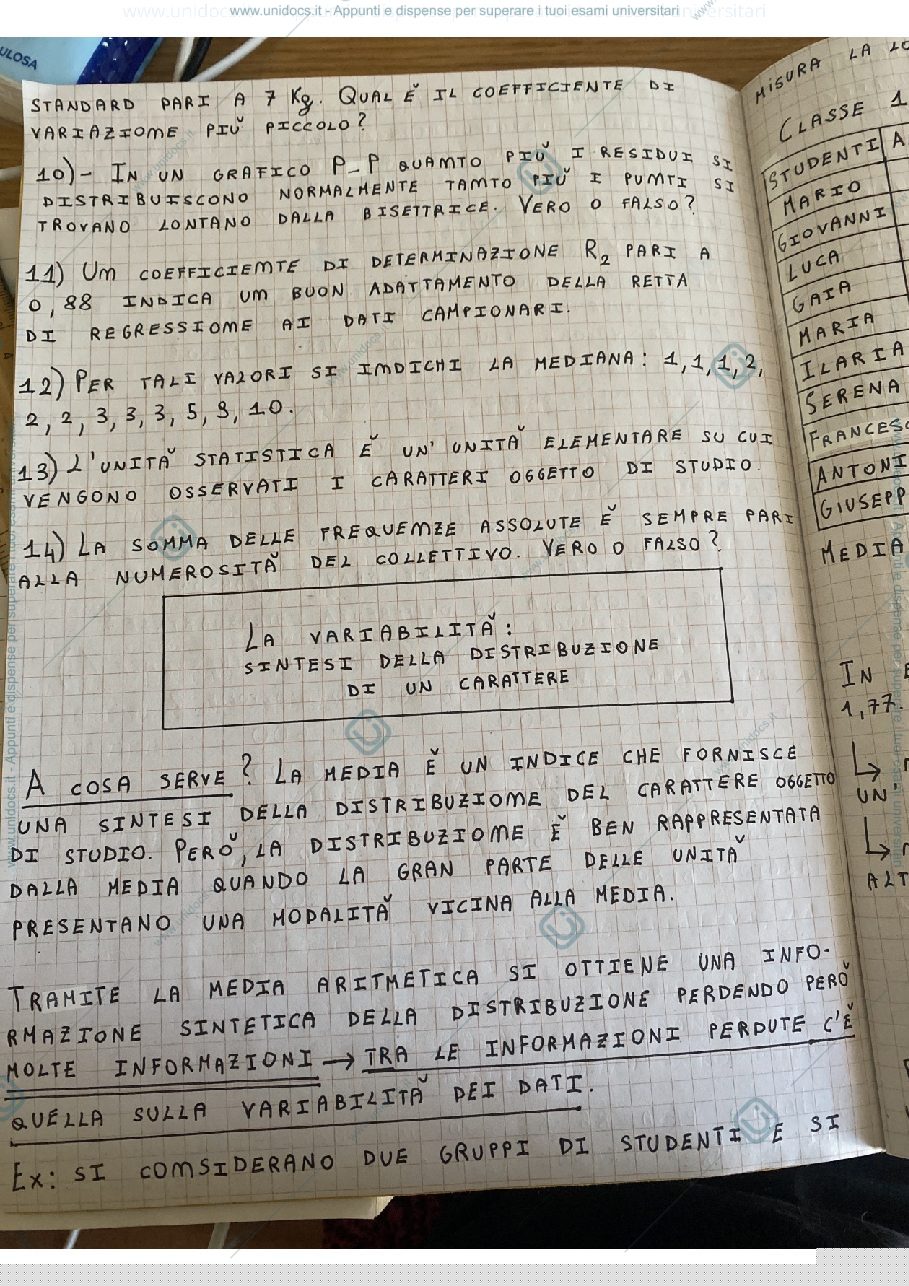 www.unidocs.it - Appunti e dispense per superare i tuoi esami universitari
ULOSA
STANDARD PARI A 7 Kg. QUAL È IL COEFFICIENTE DI
VARIAZIOME PIÙ PICCOLO?
10)- IN UN GRAFICO P-P QUAMTO PIÙ I RESIDUI SI
DISTRIBUISCONO NORMALMENTE TAMTO PIÙ I PUMTI SI
TROVANO LONTANO DALLA BISETTRICE. VERO O FALSO?
11) UM COEFFICIEMTE DI DETERMINAZIONE R2 PARI A
0,88 INDICA UM BUON ADATTAMENTO DELLA RETTA
DI REGRESSIOME AI DATI CAMPIONARI.
12) PER TALI VALORI SI IMDICHI LA MEDIANA: 1,1,1,2,
2,2,3,3,3,5,9,10.
13) L'UNITÀ STATISTICA È UN'UNITÀ ELEMENTARE SU CUI
VENGONO OSSERVATI I CARATTERI OGGETTO DI STUDIO.
14) LA SOMMA DELLE FREQUEMZE ASSOLUTE È SEMPRE PARI
ALLA NUMEROSITÀ DEL COLLETTIVO. VERO O FALSO?
LA VARIABILITÀ:
SINTESI DELLA DISTRIBUZIONE
DI UN CARATTERE
A COSA SERVE? LA MEDIA È UN INDICE CHE FORNISCE
UNA SINTESI DELLA DISTRIBUZIOME DEL CARATTERE OGGETTO
DI STUDIO. PERÒ, LA DISTRIBUZIOME È BEN RAPPRESENTATA
DALLA MEDIA QUANDO LA GRAN PARTE DELLE UNITÀ
PRESENTANO UNA MODALITÀ VICINA ALLA MEDIA.
TRAMITE LA MEDIA ARITMETICA SI OTTIENE UNA INFO-
RMAZIONE SINTETICA DELLA DISTRIBUZIONE PERDENDO PERÒ
MOLTE INFORMAZIONI → TRA LE INFORMAZIONI PERDUTE C'È
QUELLA SULLA VARIABILITÀ DEI DATI.
Ex: SI COMSIDERANO DUE GRUPPI DI STUDENTI E SI
MISURA LA
CLASSE 1
STUDENTI A
MARIO
GIOVANNI
LUCA
GAIA
MARIA
ILARIA
SERENA
FRANCESC
ANTONI
GIUSEPP
MEDIA
IN
1,77.
UN'
ALT